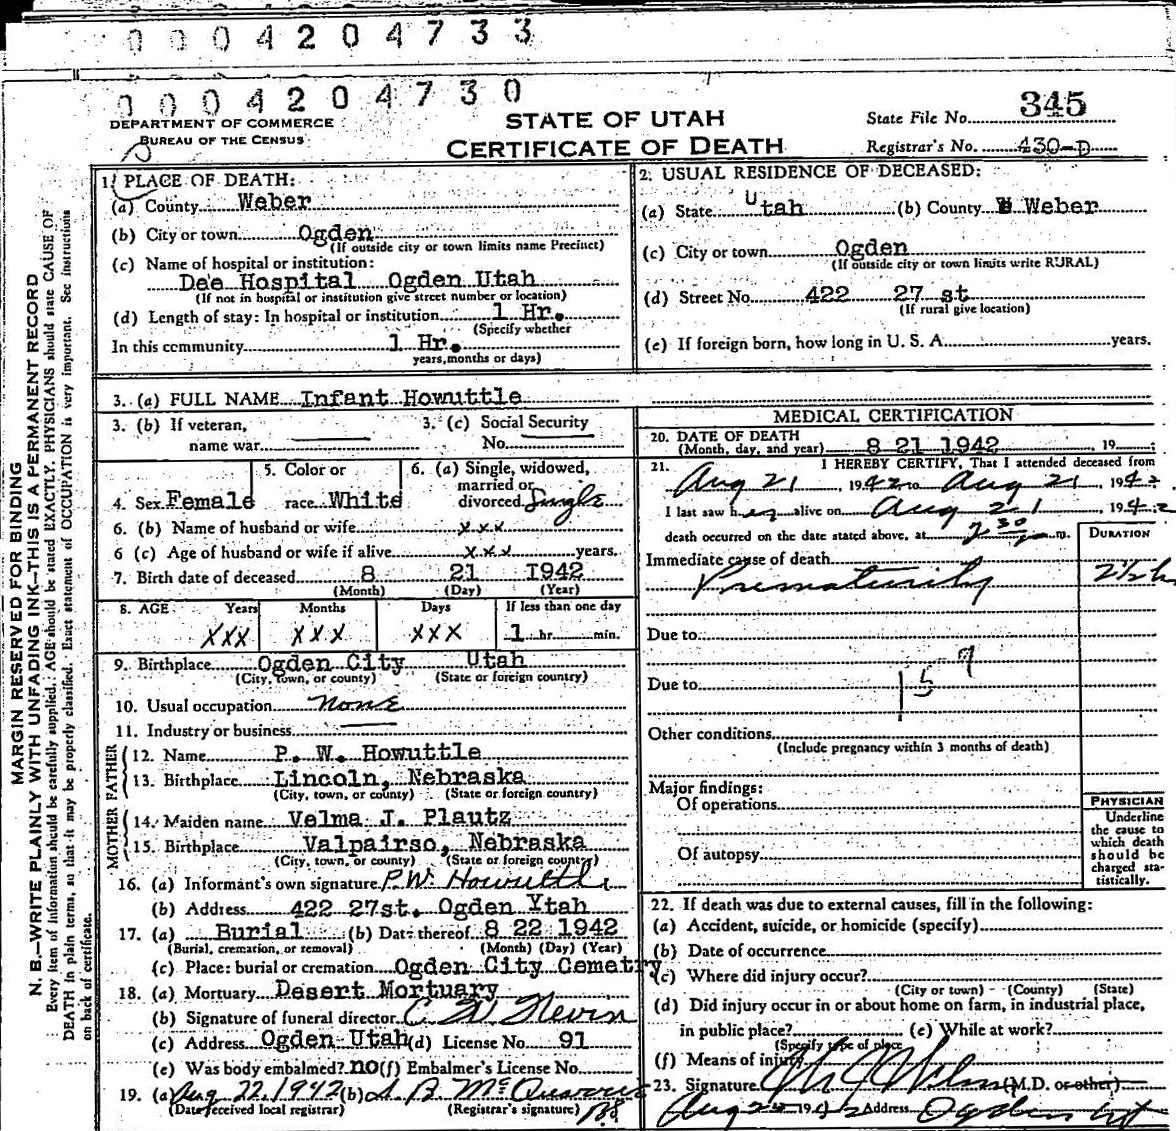 0004204733
0004204730
DEPARTMENT OF COMMERCE
BUREAU OF THE CENSUS
STATE OF UTAH
CERTIFICATE OF DEATH
State File No. 345
Registrar's No. 430-D
MARGIN RESERVED FOR BINDING
N. B.—WRITE PLAINLY WITH UNFADING INK—THIS IS A PERMANENT RECORD
Every item of information should be carefully supplied. AGE should be stated EXACTLY. PHYSICIANS should state CAUSE OF
DEATH in plain terms, so that it may be properly classified. Exact statement of OCCUPATION is very important. See instructions
on back of certificate.
1. PLACE OF DEATH:
(a) County Weber
(b) City or town Ogden
(If outside city or town limits name Precinct)
(c) Name of hospital or institution:
Dee Hospital Ogden Utah
(If not in hospital or institution give street number or location)
(d) Length of stay: In hospital or institution 1 Hr.
(Specify whether
In this community 1 Hr.
years, months or days)
2. USUAL RESIDENCE OF DECEASED:
(a) State Utah (b) County Weber
(c) City or town Ogden
(If outside city or town limits write RURAL)
(d) Street No. 422 27 st
(If rural give location)
(e) If foreign born, how long in U. S. A. years.
3. (a) FULL NAME Infant Howuttle
3. (b) If veteran,
name war
3. (c) Social Security
No.
4. Sex Female
5. Color or
race White
6. (a) Single, widowed,
married or
divorced Single
6. (b) Name of husband or wife xxx
6 (c) Age of husband or wife if alive xxx years.
7. Birth date of deceased 8 21 1942
(Month) (Day) (Year)
8. AGE Years Months Days If less than one day
XXX XXX XXX 1 hr. min.
9. Birthplace Ogden City Utah
(City, town, or county) (State or foreign country)
10. Usual occupation none
11. Industry or business
FATHER
12. Name P. W. Howuttle
13. Birthplace Lincoln, Nebraska
(City, town, or county) (State or foreign country)
MOTHER
14. Maiden name Velma J. Plautz
15. Birthplace Valpairso, Nebraska
(City, town, or county) (State or foreign country)
16. (a) Informant's own signature P.W. Howuttle
(b) Address 422 27st. Ogden Ytah
17. (a) Burial (b) Date thereof 8 22 1942
(Burial, cremation, or removal) (Month) (Day) (Year)
(c) Place: burial or cremation Ogden City Cemetry
18. (a) Mortuary Desert Mortuary
(b) Signature of funeral director
(c) Address Ogden Utah (d) License No. 91
(e) Was body embalmed? no (f) Embalmer's License No.
19. (a) Aug 22, 1942 (b)
(Date received local registrar) (Registrar's signature)
MEDICAL CERTIFICATION
20. DATE OF DEATH
(Month, day, and year) 8 21 1942 19
21. I HEREBY CERTIFY, That I attended deceased from
Aug 21, 1942 to Aug 21, 1942
I last saw her alive on Aug 21, 1942
death occurred on the date stated above, at 7 30 p m.
DURATION
Immediate cause of death
Prematurity 2½ h
Due to
Due to
157
Other conditions
(Include pregnancy within 3 months of death)
Major findings:
Of operations
Of autopsy
PHYSICIAN
Underline
the cause to
which death
should be
charged sta-
tistically.
22. If death was due to external causes, fill in the following:
(a) Accident, suicide, or homicide (specify)
(b) Date of occurrence
(c) Where did injury occur?
(City or town) (County) (State)
(d) Did injury occur in or about home on farm, in industrial place,
in public place? (e) While at work?
(Specify type of place
(f) Means of injury
23. Signature (M.D. or other)
Aug 22 1942 Address Ogden Ut